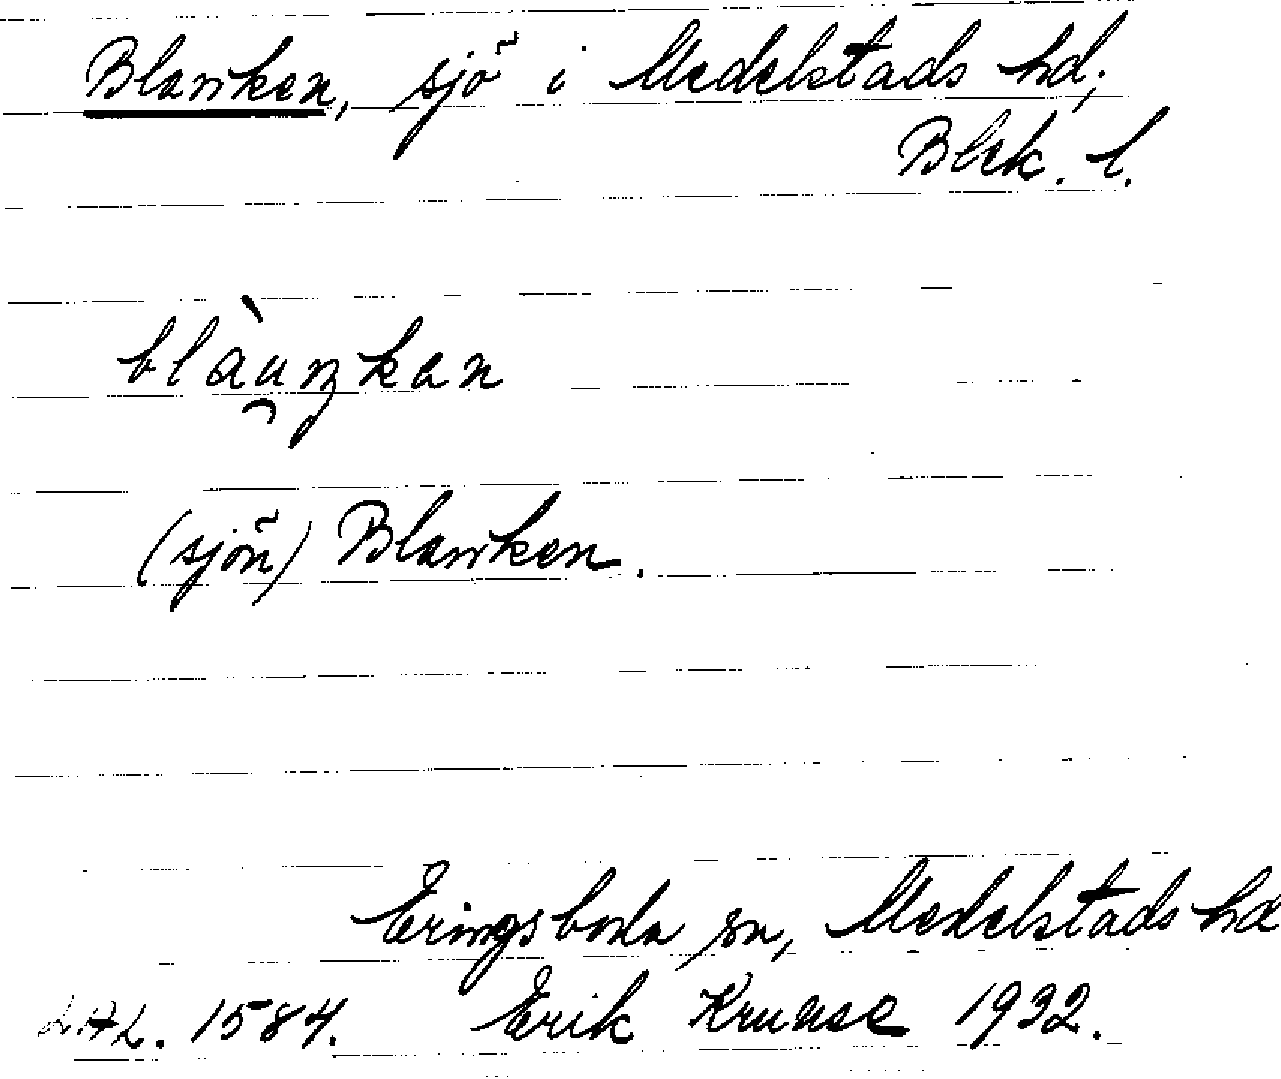 Blanken, sjö i Medelstads hd,
Blek. l.
blàu̯ŋkan
(sjön) Blanken.
Eringsboda sn, Medelstads hd
LAL. 1584. Erik Kruuse 1932.